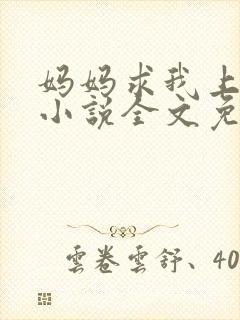 妈妈求我上
小说全文免
雲卷雲舒、40